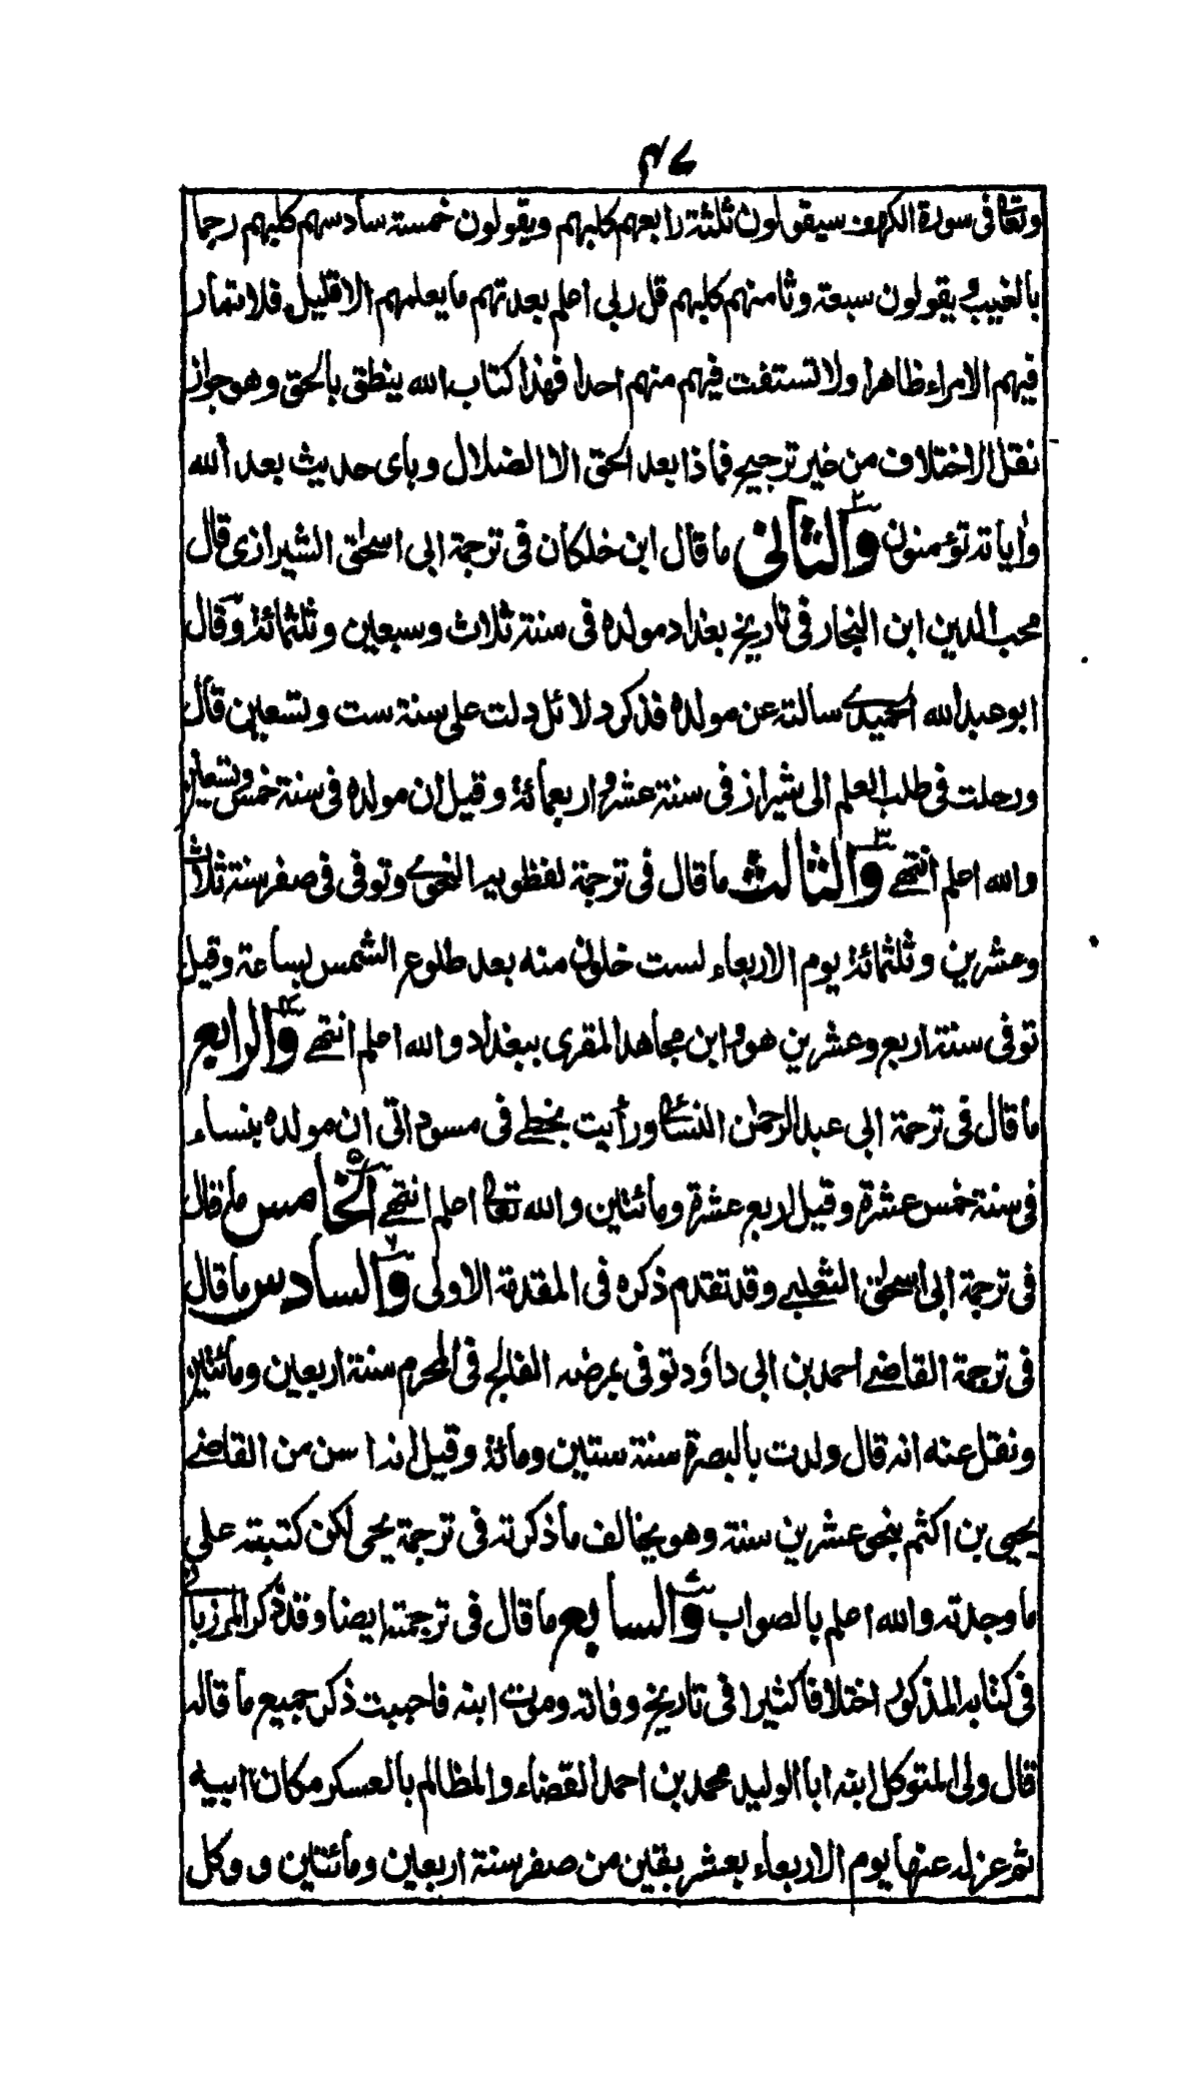 ٤٧
وتعالى فى سورة الكهف سيقولون ثلثة رابعهم كلبهم ويقولون خمسة سادسهم كلبهم رجما
بالغيب ويقولون سبعة وثامنهم كلبهم قل ربى اعلم بعدتهم ما يعلمهم الا قليل فلا تمار
فيهم الا مراء ظاهرا ولا تستفت فيهم منهم احدا فهذا كتاب الله ينطق بالحق وهو جواز
نقل الاختلاف من غير ترجيح فماذا بعد الحق الا الضلال وباى حديث بعد الله
وأياته تؤمنون والثانى ٢ ما قال ابن خلكان فى ترجمة ابى اسحق الشيرازى قال
محب الدين ابن النجار فى تاريخ بغداد مولده فى سنة ثلاث وسبعين وثلثمائة وقال
ابو عبد الله الحميدى سالته عن مولده فذكر دلائل دلت على سنة ست وتسعين قال
ورحلت فى طلب العلم الى شيراز فى سنة عشر واربعمائة وقيل ان مولده فى سنة خمس وتسعين
والله اعلم انتهى والثالث ٣ ما قال فى ترجمة نفظويه النحوى وتوفى فى صفر سنة ثلاث
وعشرين وثلثمائة يوم الاربعاء لست خلون منه بعد طلوع الشمس بساعة وقيل
توفى سنة اربع وعشرين هو وابن مجاهد المقرى ببغداد والله اعلم انتهى والرابع ٤
ما قال فى ترجمة ابى عبد الرحمن النسائى ورأيت بخطى فى مسوداتى ان مولده بنساء
فى سنة خمس عشرة وقيل اربع عشرة ومائتين والله تعالى اعلم انتهى الخامس ٥ ما قال
فى ترجمة ابى اسحق الثعلبى وقد تقدم ذكره فى المقدمة الاولى والسادس ٦ ما قال
فى ترجمة القاضى احمد بن ابى داؤد توفى بمرضه الفالج فى المحرم سنة اربعين ومائتين
ونقل عنه انه قال ولدت بالبصرة سنة ستين ومائة وقيل انه اسن من القاضى
يحيى بن اكثم بنحو عشرين سنة وهو يخالف ما ذكرته فى ترجمة يحيى لكن كتبته على
ما وجدته والله اعلم بالصواب والسابع ٧ ما قال فى ترجمته ايضا وقد ذكر المرزبانى
فى كتابه المذكور اختلافا كثيرا فى تاريخ وفاته وموت ابنه فاحببت ذكر جميع ما قاله
قال ولى المتوكل ابنه ابا الوليد محمد بن احمد القضاء والمظالم بالعسكر مكان ابيه
ثم عزله عنها يوم الاربعاء بعشر بقين من صفر سنة اربعين ومائتين و وكل